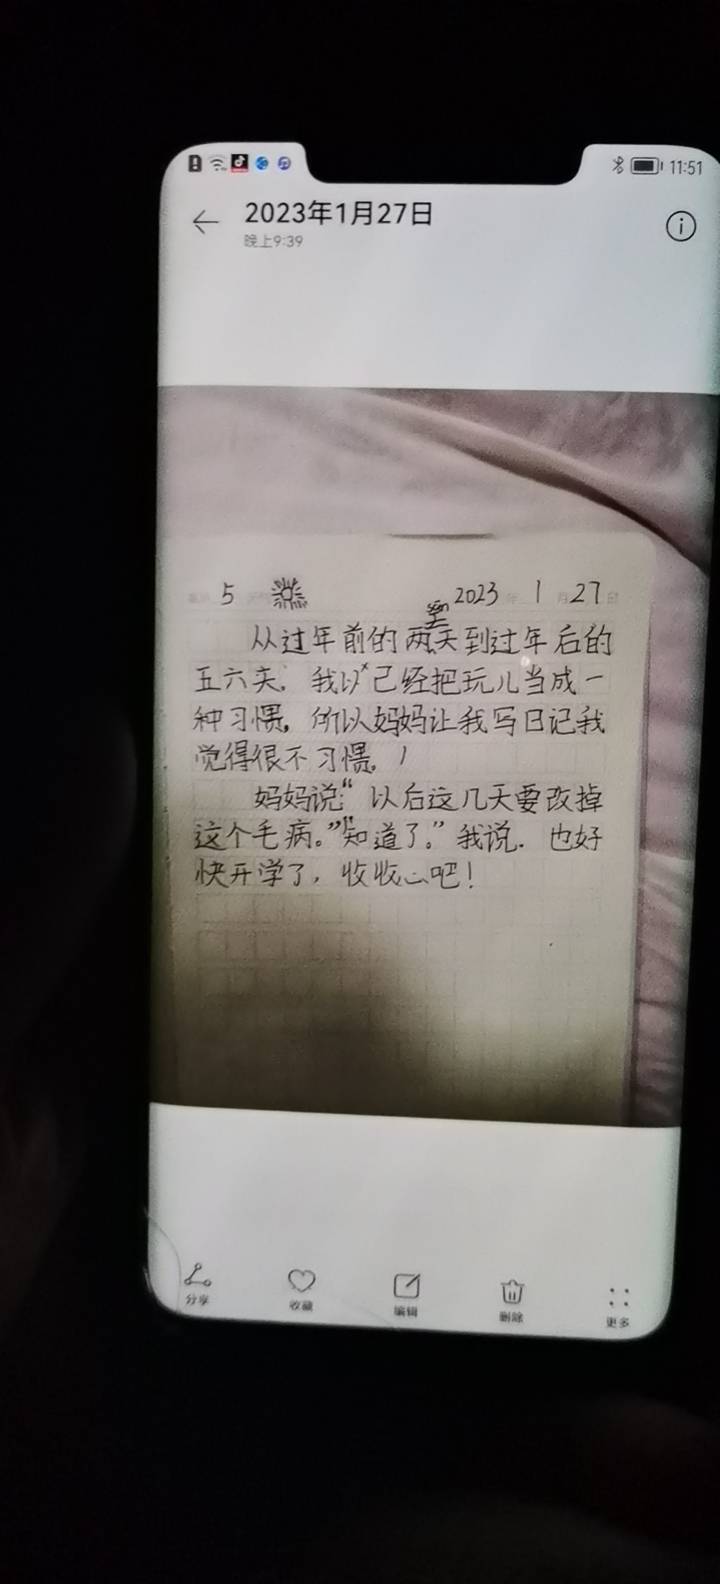 11:51
2023年1月27日
晚上9:39
5 2023 年 1 月 27 日
从过年前的两天到过年后的
五六天，我以己经把玩儿当成一
种习惯，所以妈妈让我写日记我
觉得很不习惯。
妈妈说：“以后这几天要改掉
这个毛病。”“知道了。”我说．也好
快开学了，收收心吧！
分享 收藏 编辑 删除 更多